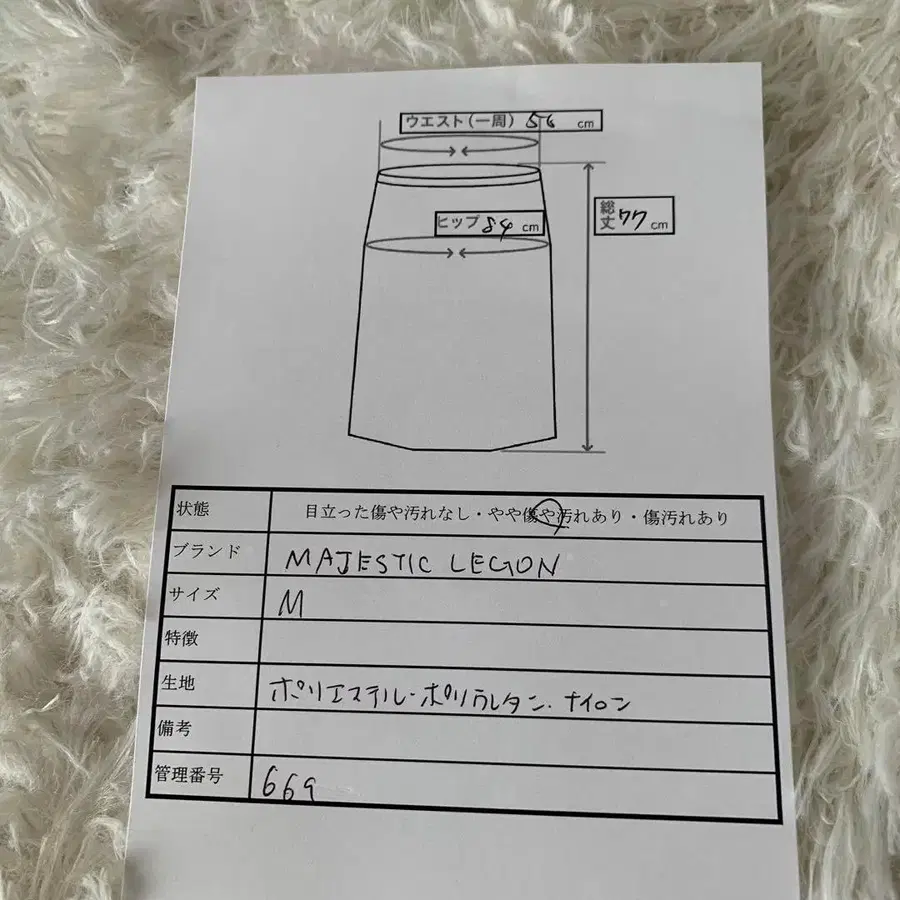 ウエスト(一周) 56 cm
ヒップ 84 cm
総丈 77 cm
状態 目立った傷や汚れなし・やや傷や汚れあり・傷汚れあり
ブランド MAJESTIC LEGON
サイズ M
特徴
生地 ポリエステル・ポリウレタン・ナイロン
備考
管理番号 669